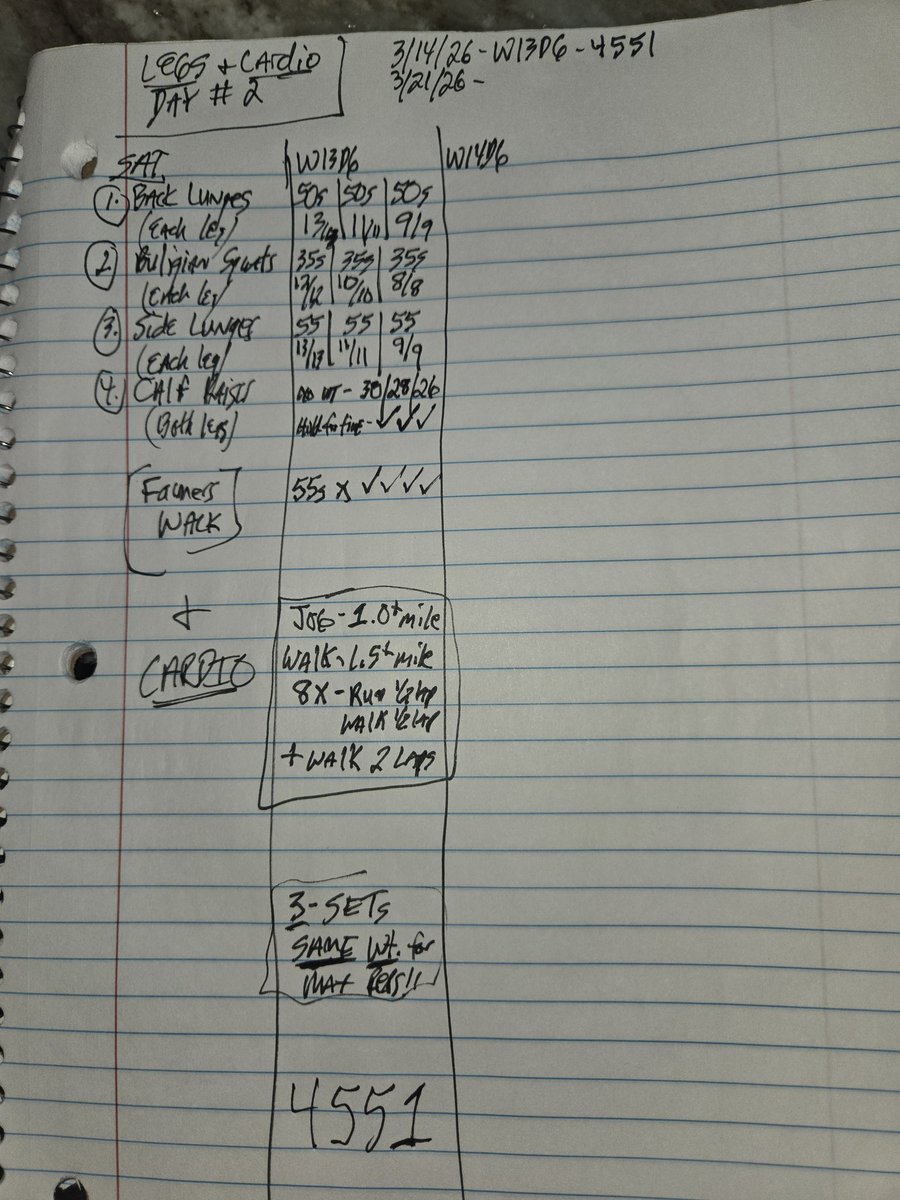 LEGS + CARDIO
DAY # 2
3/14/26 - W13D6 - 4551
3/21/26 -
SAT
W13D6
W14D6
1. BACK LUNGES 50s | 50s | 50s
(EACH LEG) 13/ | 11/11 | 9/9
2. Bulgian Squats 35s | 35s | 35s
(EACH LEG) 12/12 | 10/10 | 8/8
3. Side LUNGES 55 | 55 | 55
(EACH LEG) 13/13 | 11/11 | 9/9
4. CALF RAISES NO WT - 30/28/26
(Both legs) Hold for five - ✓ ✓ ✓
[Farmers 55s x ✓ ✓ ✓ ✓
WALK]
+
CARDIO
JOG - 1.0+ mile
WALK - 1.5+ mile
8X - Run 1/2 lap
WALK 1/2 lap
+ WALK 2 LAPS
3 - SETS
SAME WT. for
MAX REPS!!
4551